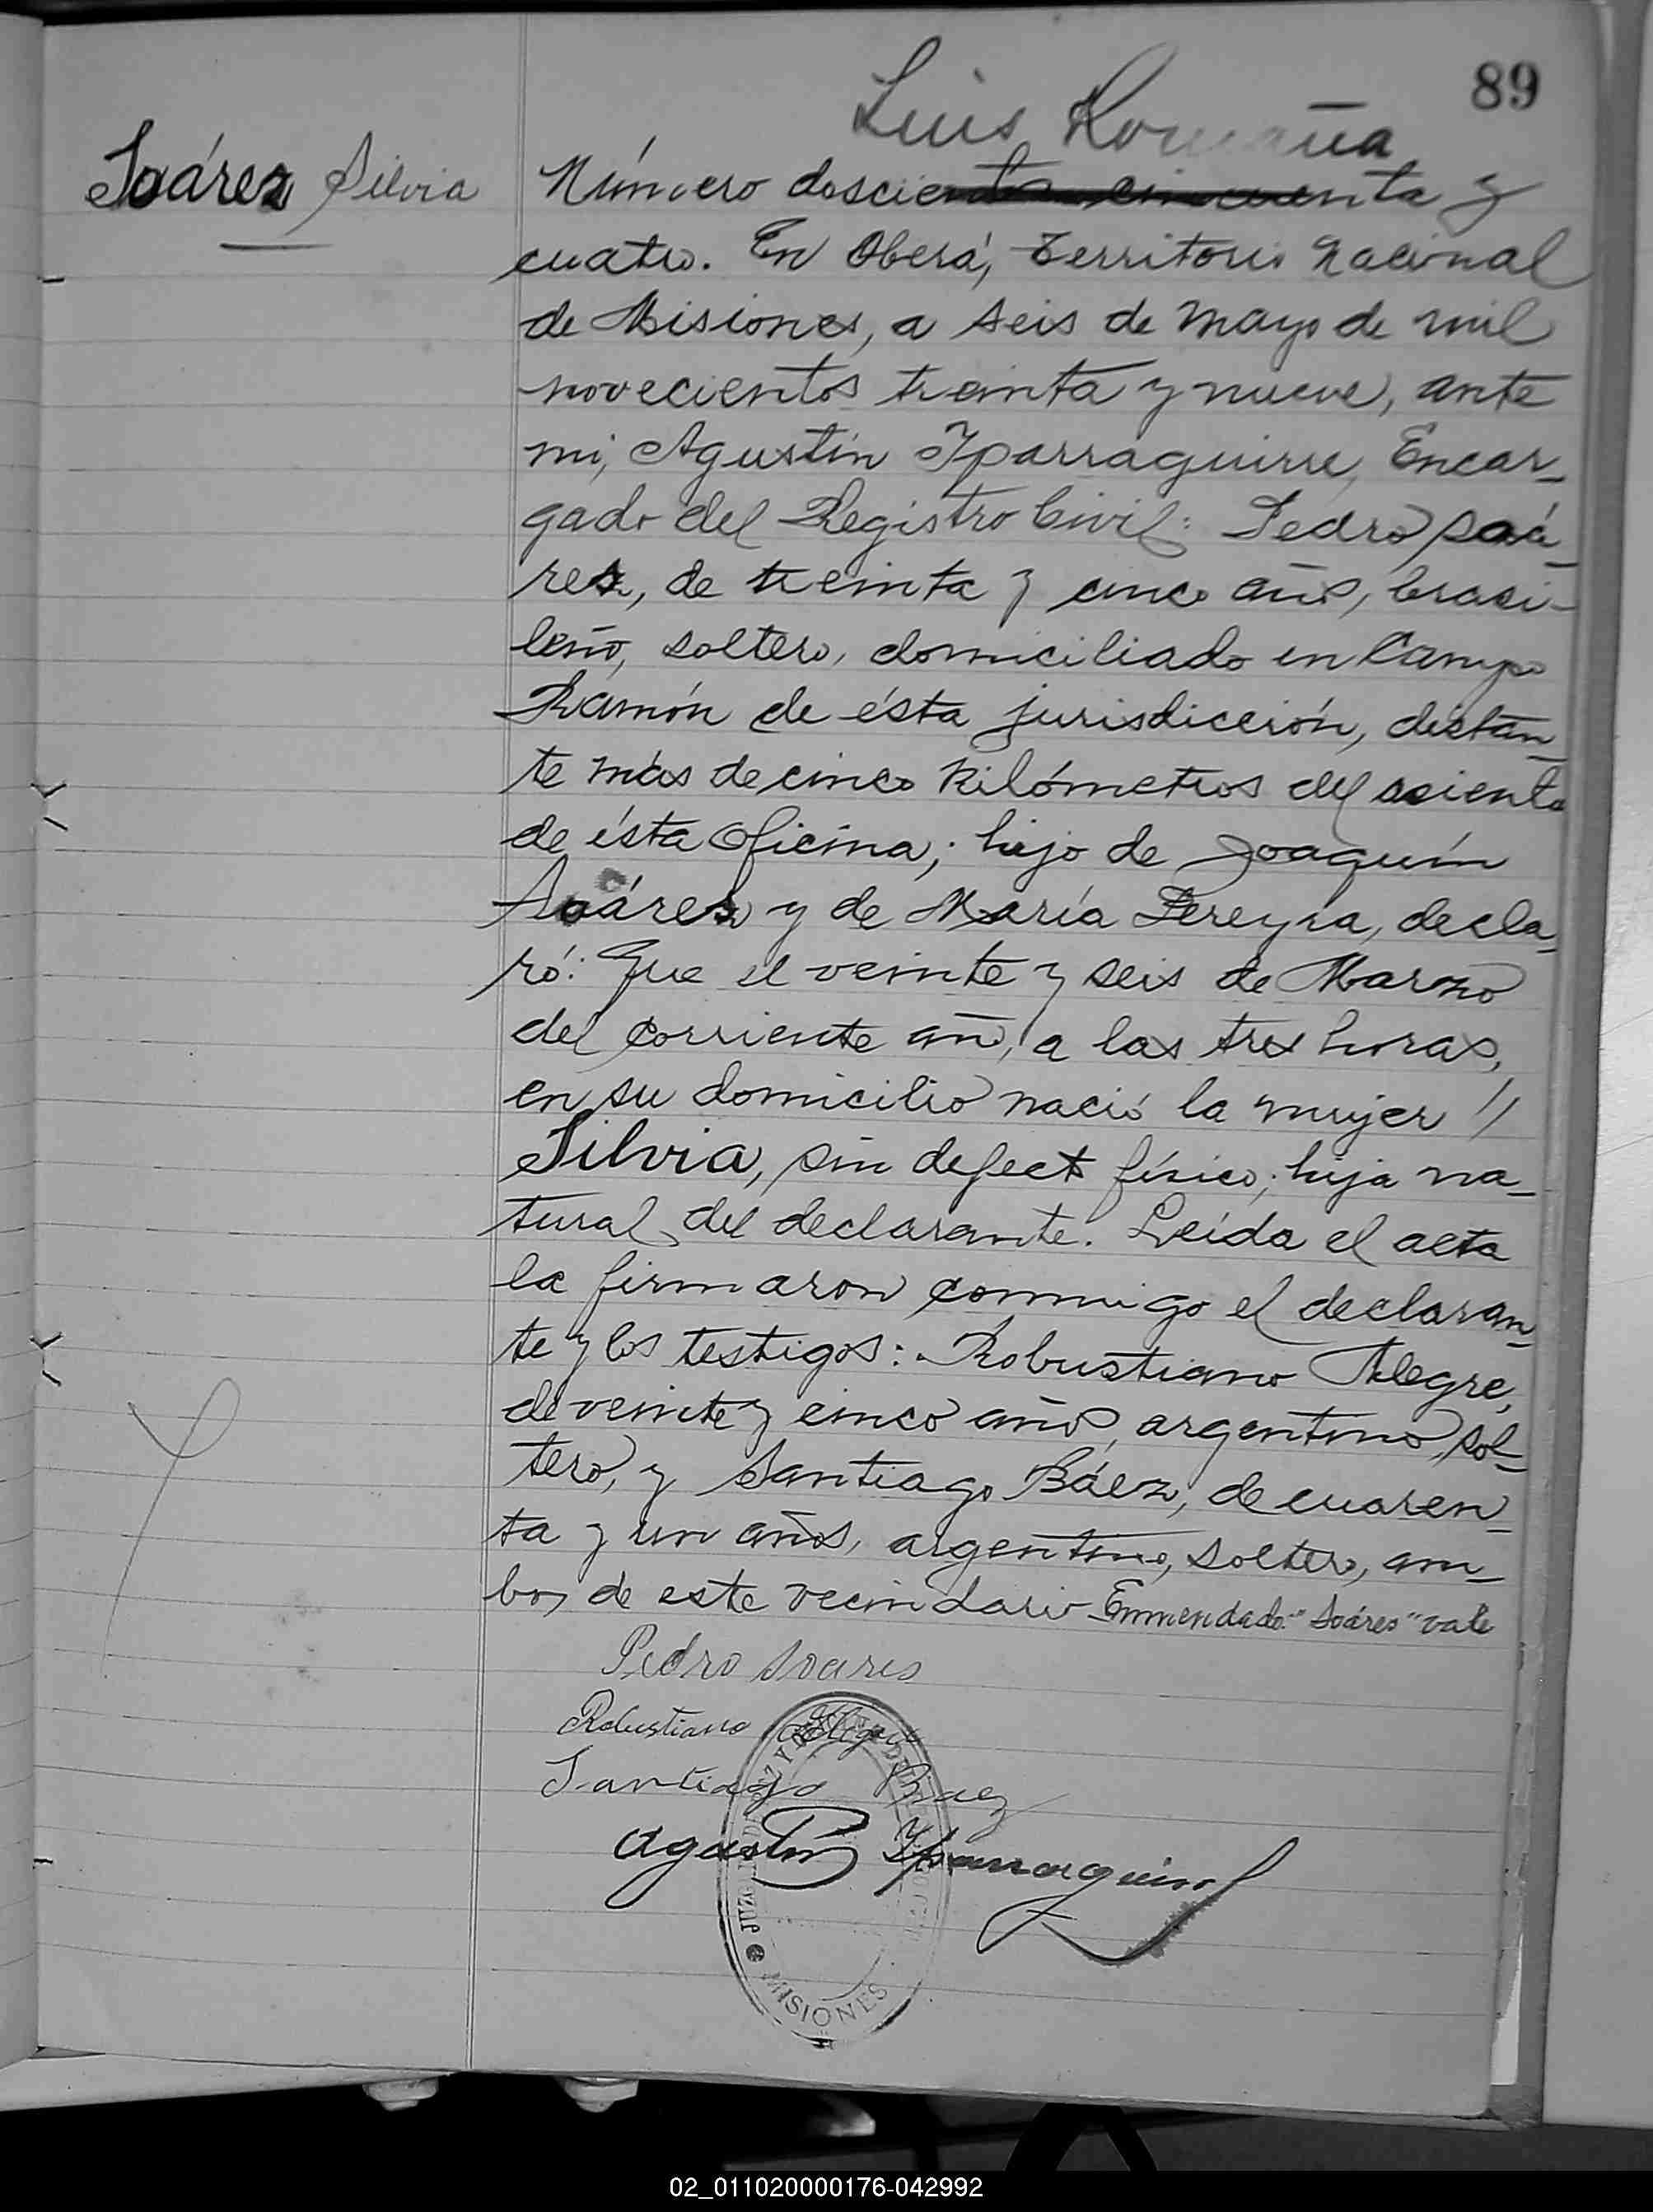 89
Luis
Soáres Silvia
Número doscientos cincuenta y
cuatro. En Oberá, Territorio Nacional
de Misiones, a seis de Mayo de mil
novecientos treinta y nueve, ante
mi, Agustín Yparraguirre, Encar-
gado del Registro Civil: Pedro Soá-
res, de treinta y cinco años, brasi-
leño, soltero, domiciliado en Campo
Ramón de ésta jurisdicción, distan-
te más de cinco kilómetros del asiento
de ésta Oficina; hijo de Joaquín
Soáres y de María Pereyra, decla-
ró: Que el veinte y seis de Marzo
del corriente año, a las tres horas,
en su domicilio nació la mujer //
Silvia, sin defecto físico; hija na-
tural del declarante. Leída el acta
la firmaron conmigo el declaran-
te y los testigos: Robustiano Alegre,
de veinte y cinco años, argentino, sol-
tero, y Santiago Báez, de cuaren-
ta y un años, argentino, soltero, am-
bos de este vecindario - Enmendado: "Soáres" vale
Pedro Soares
Robustiano Alegre
Santiago Baez
Agustín Yparraguirre
JUZGADO DE PAZ Y
MISIONES
02_011020000176-042992